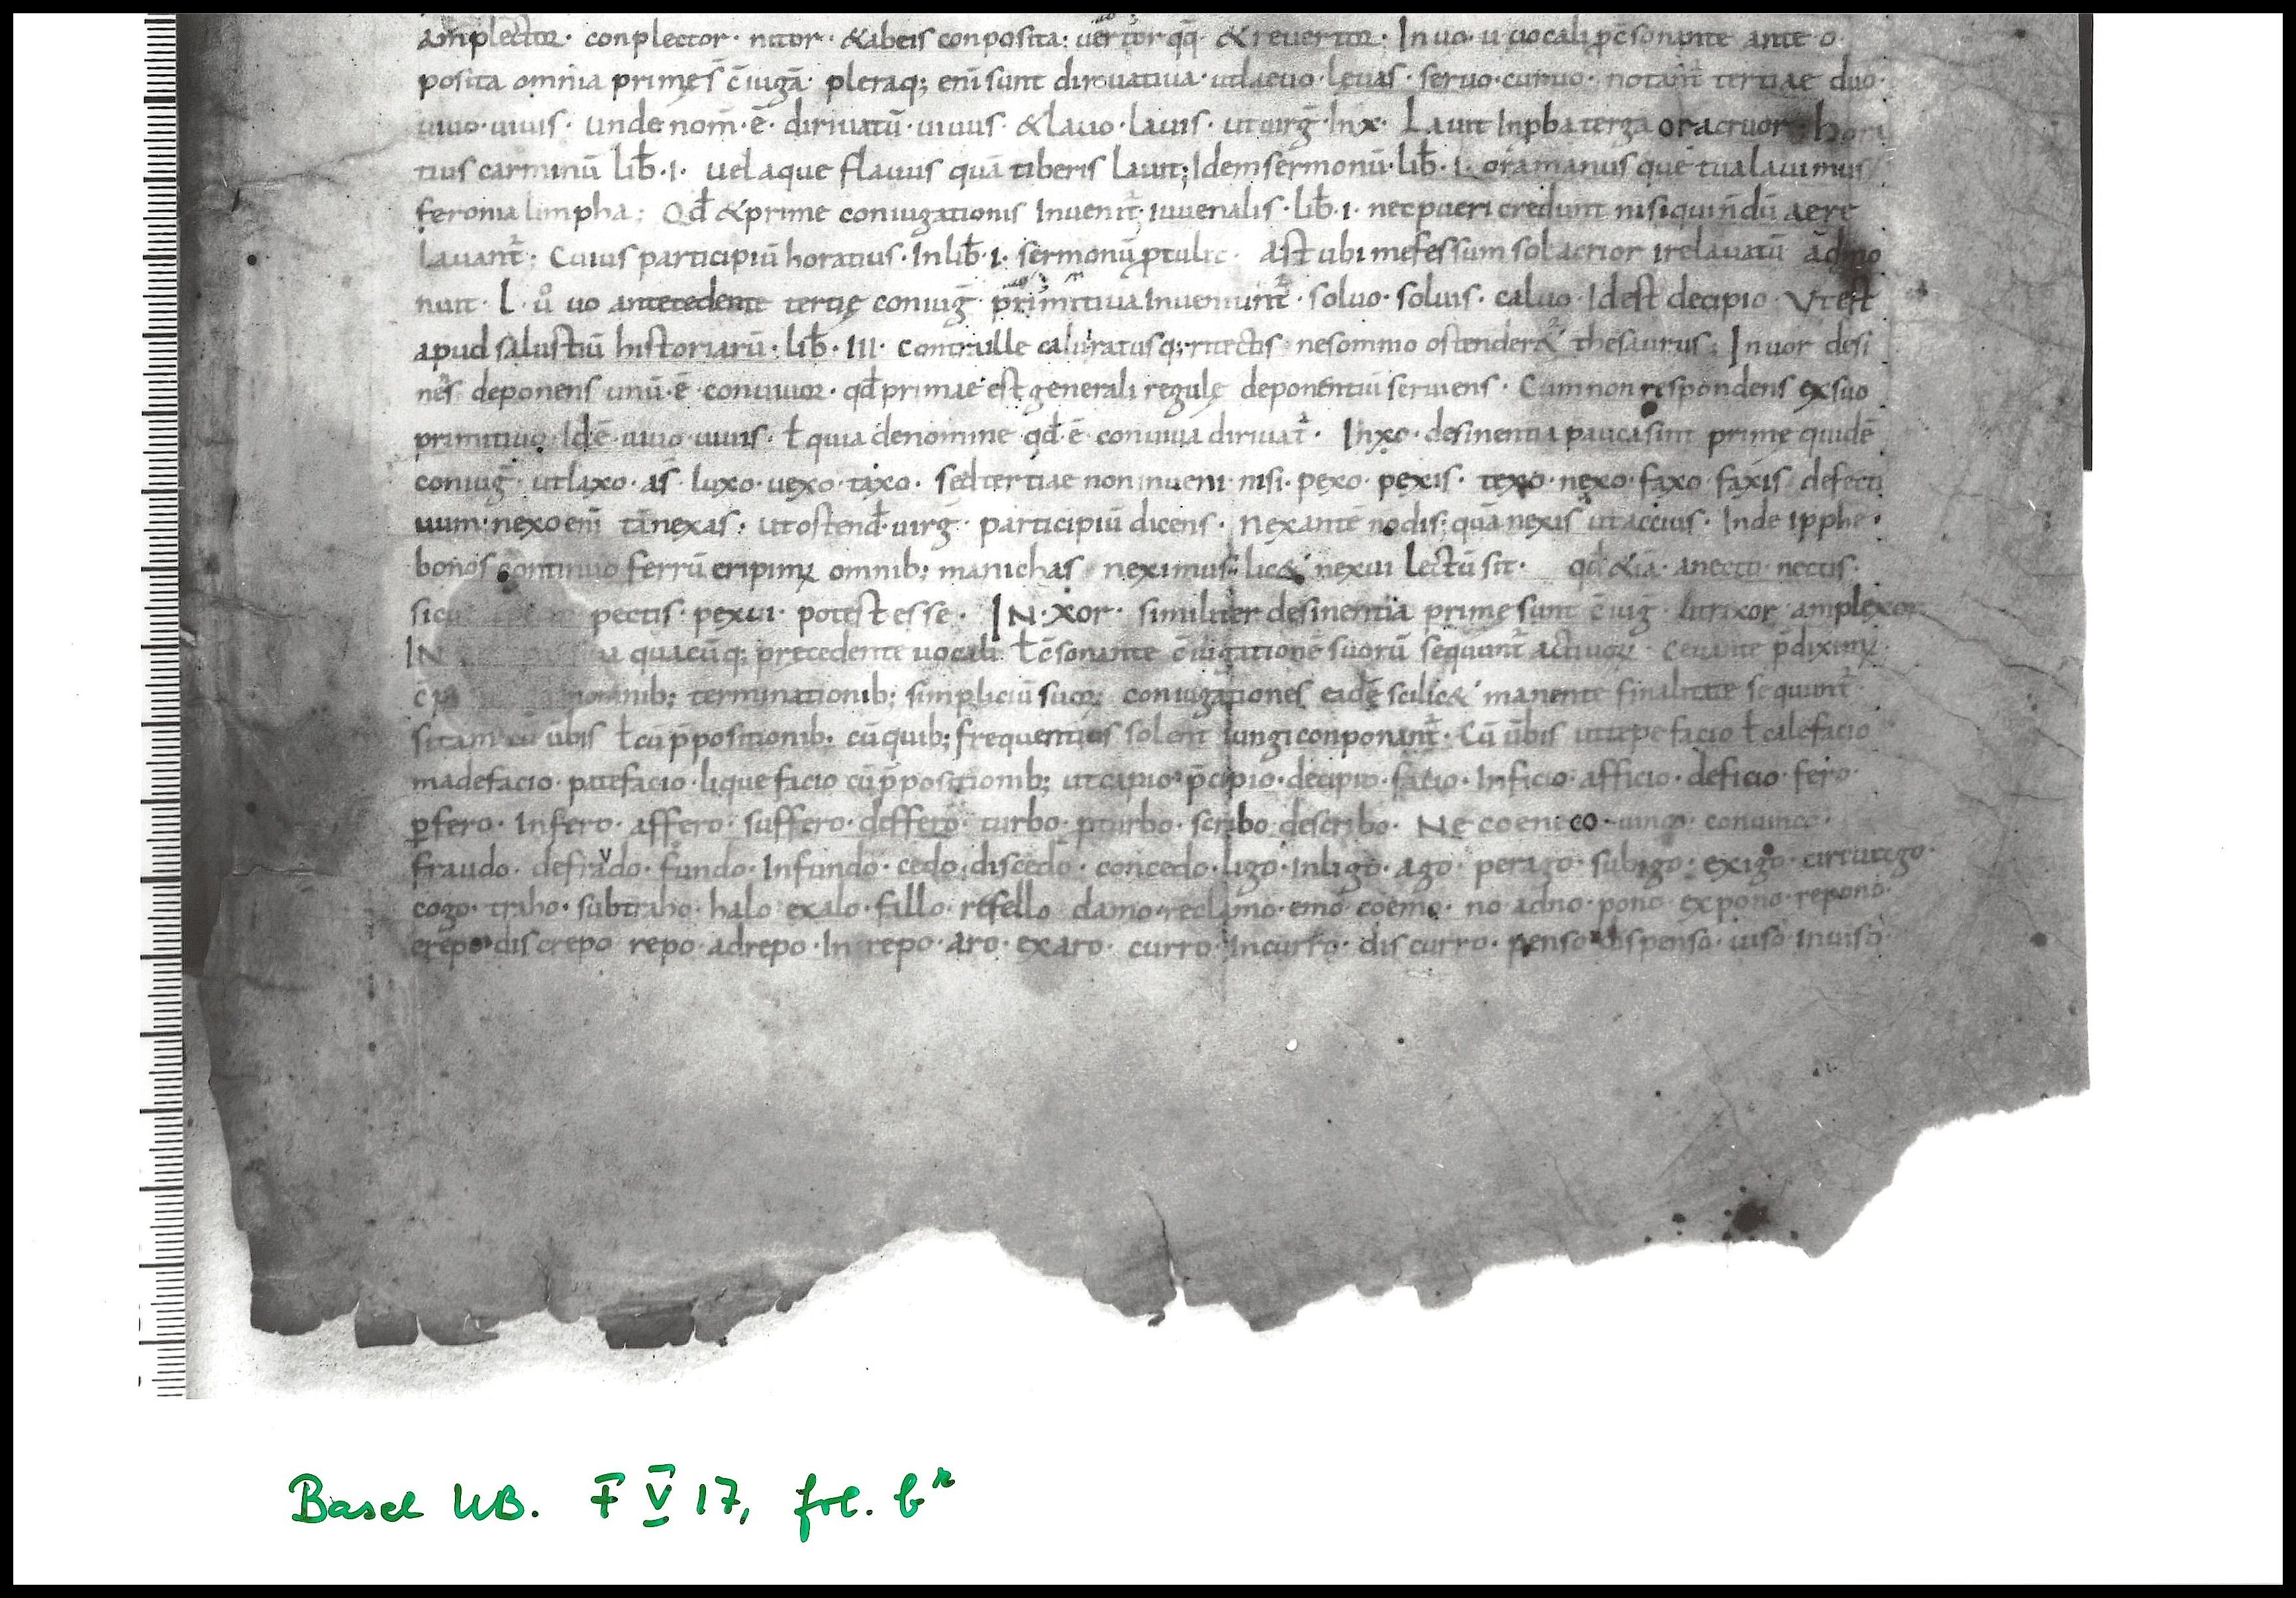 amplector · conplector · nitor · & ab eis conposita : vertor qq̄ · & revertor · In uo · u vocali ł c̄sonante ante o ·
posita omnia primę s̄ c̄iugā · pleraq; eni sunt dirivativa · ut laevo · levas · servo · curvo · notant᷑ tertiae duo ·
uiuo · uiuis · unde nom̄ · ē · dirivatū · uiuus · & lavo · lavis · ut uirg̅ · In x · Lavit Inpba terga or acruor · hora
tius carminū lib̄ · I · vel aque flavus quā tiberis lavit ; Idem sermonū · lib̄ · I · ora manusque tua lavimus
feronia limpha ; Qd̄ & prime coniugationis Invenit᷑ · iuvenalis · lib̄ · I · nec pueri credunt nisi qui nḋū aere
lavant᷑ ; Cuius participiū horatius · In lib̄ · I · sermonū ptulit · Ast ubi me fessum sol acrior ire lavatū admo
nuit · L · ů uo antecedente tertię coniug̅ · primitiva Inveniunt᷑ · solvo · solvis · calvo · Idest decipio · Vt est
apud salustiū historiarū · lib̄ · III · Contra ille calviratus q; rectis ne somnio ostender& thesaurus ; In vor desi
nēs deponens unū · ē · convivor · qd̄ primae est generali regulę deponentiū serviens · Cum non respondens ex suo
primitivo · Id ē · vivo · vivis · ł quia de nomine qd̄ · ē · convivia dirivat᷑ · In xo · desinentia pauca sunt primę quidē
coniug̅ · ut laxo · as · luxo · vexo · taxo · sed tertiae non inveni nisi · pexo · pexis · texo · nexo · faxo · faxis defecti
vum · nexo enī tā nexas · ut ostend̄ · uirg̅ · participiū dicens · Nexantē nodis · quā nexis ut accius · Inde ipphe ·
bonos continuo ferrū eripimꝰ omnib; manichas neximus · lic& nexui lectū sit · qd̄ &iā · a necto · nectis ·
sicut pectis · pexui · potest esse · IN · xor · similiter desinentia primę sunt c̄iug̅ · ut rixor · amplexor
IN quacūq; precedente vocali ł c̄sonante c̄iugationē suorū sequunt᷑ activoꝝ · p̄diximꝰ
omnib; terminationib; simpliciū suoꝝ coniugationes eadē scilic& manente finalitate sequunt᷑ ·
sitam cū ūbis ł cū p̄positionib · cū quib; frequentius solent iungi conponunt᷑ · Cū ūbis ut tepefacio ł calefacio
madefacio · patefacio · liquefacio cū p̄positionib; ut capio · p̄cipio · decipio · facio · Inficio · afficio · deficio · fero ·
ꝑfero · Infero · affero · suffero · deffero · turbo · pturbo · scribo describo · Neco eneco · vinco · convinco ·
fraudo · defravdo · fundo · Infundo · cedo · discedo · concedo · ligo · Inligo · ago · perago · subigo · exigo · circūtego ·
cogo · traho · subtraho · halo exalo · fallo · refello clamo · reclamo · emo coemo · no adno · pono expono · repono ·
crepo discrepo repo · adrepo · Inrepo · aro · exaro · curro · Incurro · discurro · penso dispenso · viso Inviso
Basel UB. F V 17, fol. b r